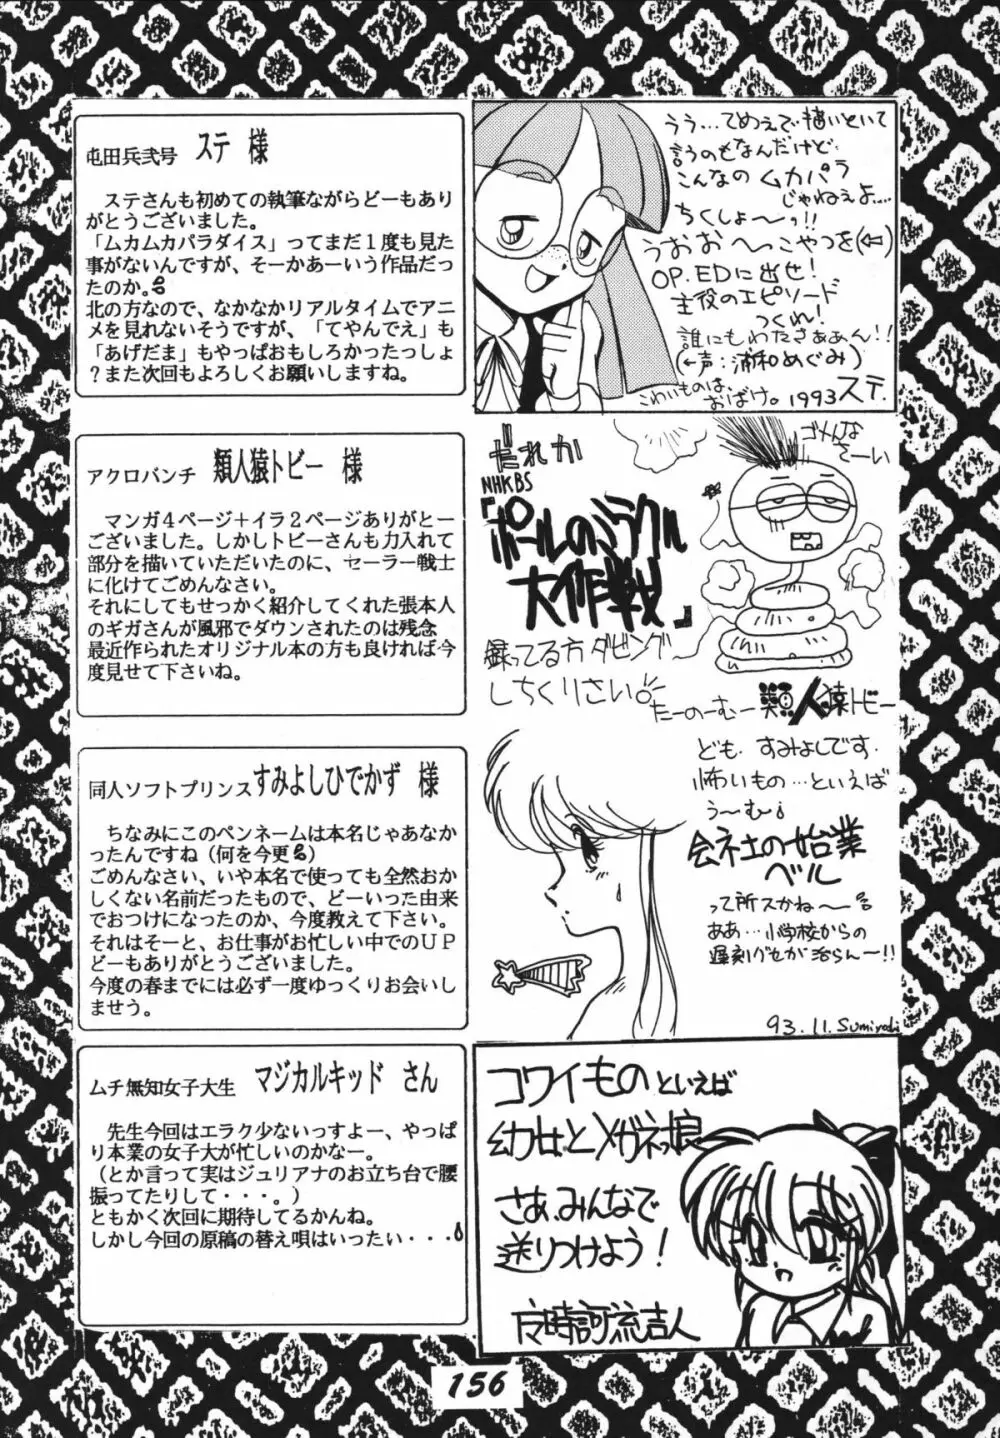 屯田兵弐号 ステ 様
ステさんも初めての執筆ながらどーもあり
がとうございました。
「ムカムカパラダイス」ってまだ1度も見た
事がないんですが、そーかあーいう作品だっ
たのか。
北の方なので、なかなかリアルタイムでアニ
メを見れないそうですが、「てやんでえ」も
「あげだま」もやっぱおもしろかったっしょ
?また次回もよろしくお願いしますね。
うう…てめえで描いといて
言うのもなんだけど
こんなの ムカパラ
じゃねぇよ…
ちくしょ〜っ!!
うおお〜っこやつを(⇦)
OP.EDに出せ!
主役のエピソード
つくれ!
誰にもわたさぁぁん!!
(←声:浦和めぐみ)
こわいものは、
おばけ。1993 ステ.
アクロバンチ 類人猿トビー 様
マンガ4ページ+イラ2ページありがとー
ございました。しかしトビーさんも力入れて
部分を描いていただいたのに、セーラー戦士
に化けてごめんなさい。
それにしてもせっかく紹介してくれた張本人
のギガさんが風邪でダウンされたのは残念
最近作られたオリジナル本の方も良ければ今
度見せて下さいね。
だれか
NHKBS
「ポールのミラクル
大作戦」
録ってる方 ダビング
しちくりさい
ゴめんな
さーい
たーのーむー 類人猿トビー
同人ソフトプリンス すみよしひでかず 様
ちなみにこのペンネームは本名じゃあなか
ったんですね(何を今更)
ごめんなさい、いや本名で使っても全然おか
しくない名前だったもので、どーいった由来
でおつけになったのか、今度教えて下さい。
それはそーと、お仕事がお忙しい中でのUP
どーもありがとうございました。
今度の春までには必ず一度ゆっくりお会いし
ませう。
ども。すみよしです。
怖いもの…といえば
う〜む
会社の始業
ベル
って所スかね〜
ああ…小学校からの
遅刻グセが治らん〜!!
93.11.Sumiyoshi
ムチ無知女子大生 マジカルキッド さん
先生今回はエラク少ないっすよー、やっぱ
り本業の女子大が忙しいのかなー。
(とか言って実はジュリアナのお立ち台で腰
振ってたりして・・・。)
ともかく次回に期待してるかんね。
しかし今回の原稿の替え唄はいったい・・・
コワイもの といえば
幼女とメガネっ娘
さあ、みんなで
送りつけよう!
156